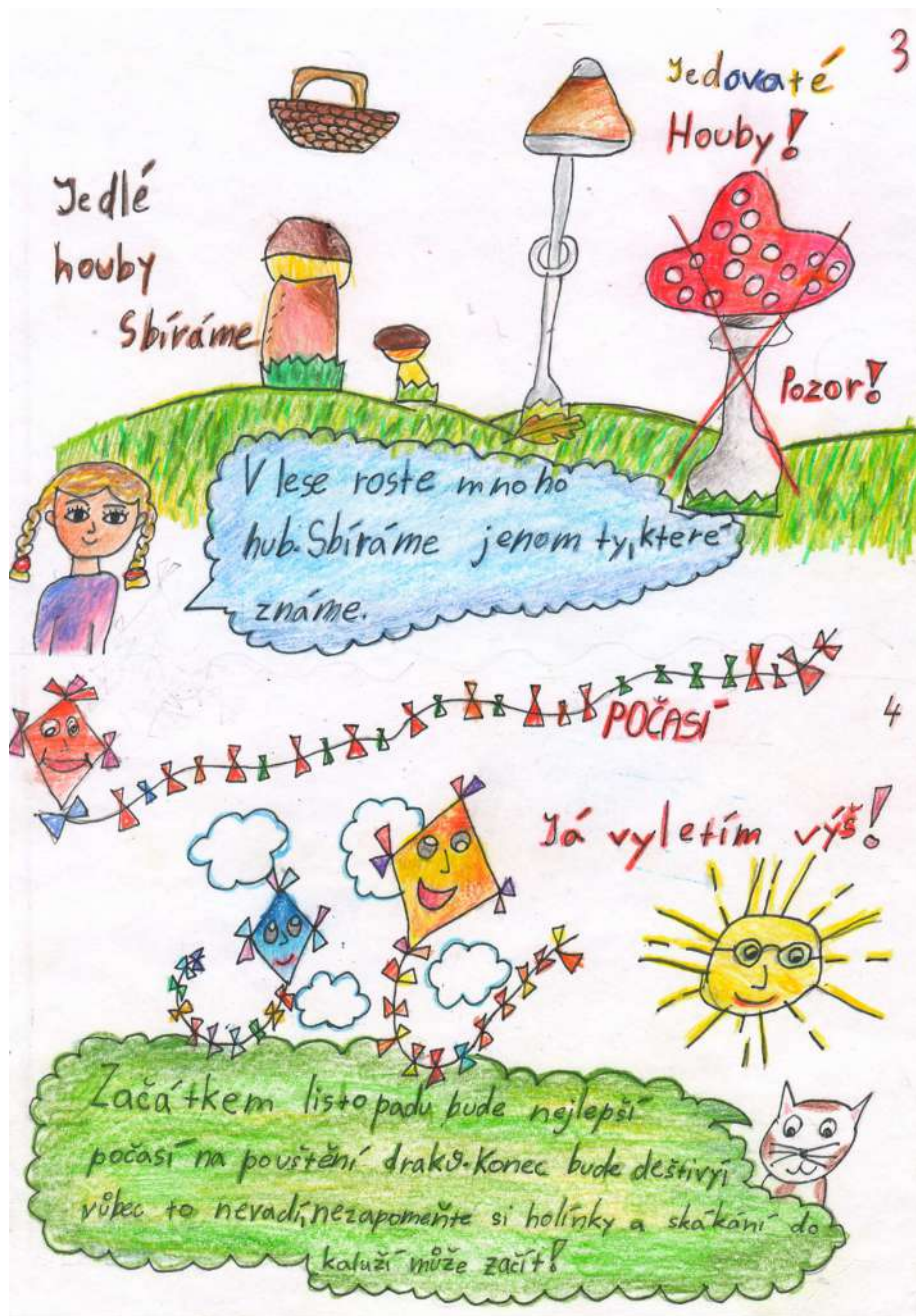 3
Jedovaté
Houby!
Jedlé
houby
Sbíráme
Pozor!
V lese roste mnoho
hub. Sbíráme jenom ty, které
známe.
POČASÍ
4
Já vyletím výš!
Začátkem listopadu bude nejlepší
počasí na pouštění draků. Konec bude deštivý,
vůbec to nevadí, nezapomeňte si holínky a skákání do
kaluží může začít!